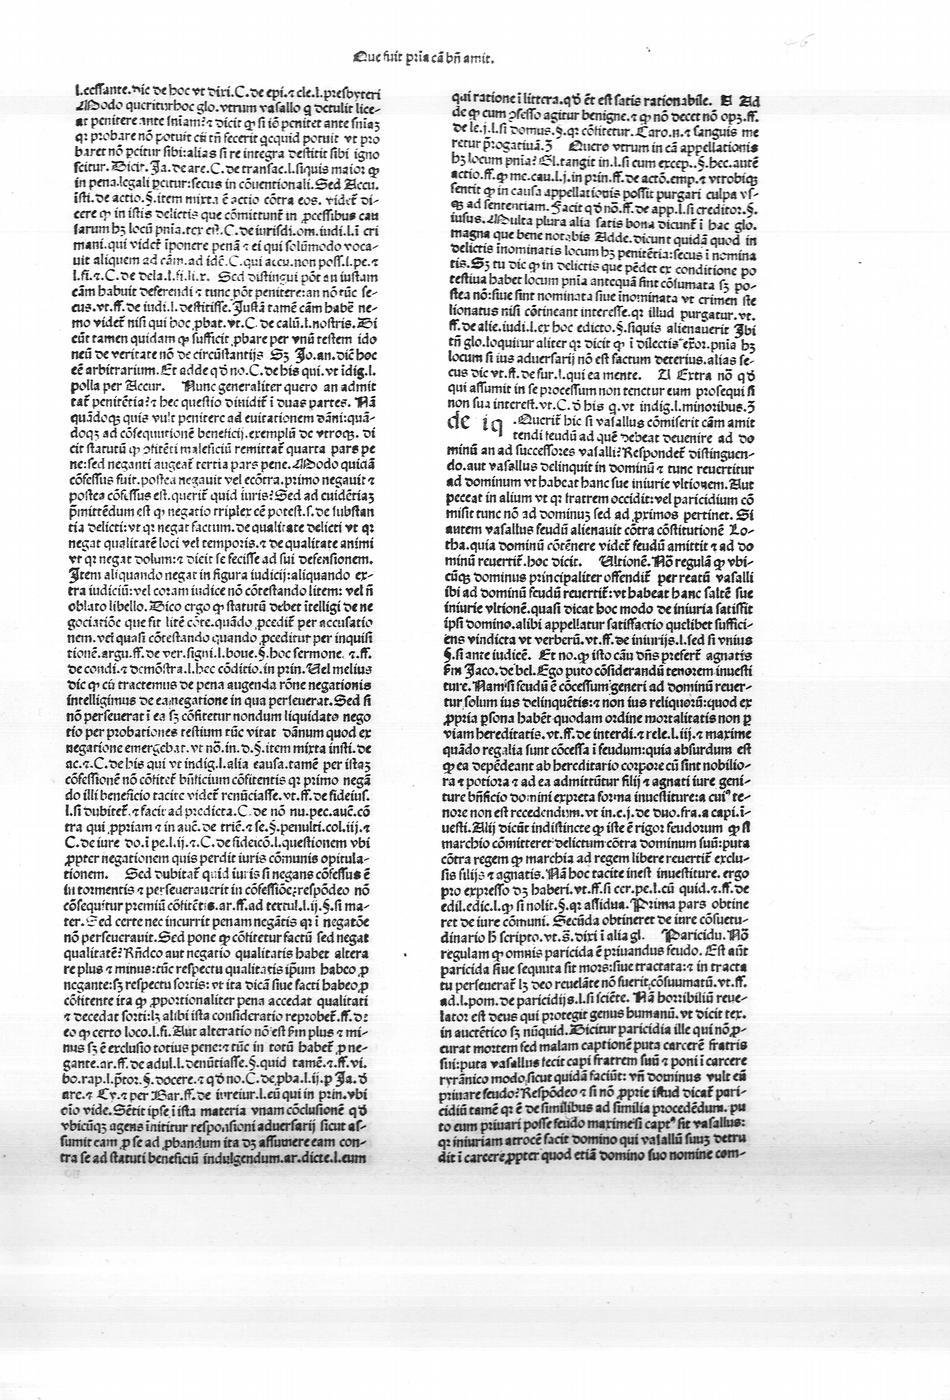 Que fuit pria cā bn̄ amit.
46
l.cessante. dic de hoc vt dixi. C. de epi. ⁊ cle. l. presbyteri
Modo queritur hoc glo. vtrum vasallo q̄ detulit lice-
at penitere ante sniam? ⁊ dicit ꝙ si iō penitet ante sniaꝫ
baret nō pcitur sibi: alias si re integra destitit sibi igno
scitur. Dicit. Ja. de are. C. de transac. l. siquis maior ꝙ
in pena. legali pcitur: secus in cōuentionali. Sed Accu.
isti. de actio. §. item mixta ē actio cōtra eos. videt̄ di-
cere ꝙ in istis delictis que cōmittunt̄ in ꝓcessibus cau
sarum hꝫ locū pnia. ter est. C. de iurisdi. om. iudi. l. ī cri
mani. qui videt̄ īponere penā ⁊ ei qui solūmodo voca-
uit aliquem ad cām. ad idē. C. qui accu. non poss. l. pe. ⁊
l. fi. ⁊ C. de dela. l. fi. li. x. Sed distingui pōt an iustam
cām habuit deferendi ⁊ tunc pōt penitere: an nō tūc se-
cus. vt. ff. de iudi. l. destitisse. Justā tamē cām habē ne-
mo videt̄ nisi qui hoc ꝓbat. vt. C. de calū. l. nostris. Di
cūt tamen quidam ꝙ sufficit ꝓbare per vnū testem ido
neū de veritate nō de circūstantijs Sꝫ Jo. an. dic̄ hoc
eē arbitrarium. Et adde qd̓ no. C. de his qui. vt īdig. l.
polla per Accur. Nunc generaliter quero an admit
tat̄ penitētia? ⁊ hec questio diuidit̄ ī duas partes. Nā
quādoqꝫ quis vult penitere ad euitationem dāni: quā-
doqꝫ ad cōsequitionē beneficij. exemplū de vtroqꝫ. di
cit statutū ꝙ ꝯfitēti maleficiū remittat̄ quarta pars pe
ne: sed neganti augeat̄ tertia pars pene. Modo quidā
cōfessus fuit. postea negauit vel ecōtra. primo negauit ⁊
postea cōfessus est. querit̄ quid iuris? Sed ad euidētiaꝫ
p̄mittēdum est ꝙ negatio triplex cē potest. s. de substan
tia delicti: vt qꝛ negat factum. de qualitate delicti vt qꝛ
negat qualitatē loci vel temporis. ⁊ de qualitate animi
vt qꝛ negat dolum: ⁊ dicit se fecisse ad sui defensionem.
Item aliquando negat in figura iudicij: aliquando ex-
tra iudiciū: vel coram iudice nō cōtestando litem: vel n̄
oblato libello. Dico ergo ꝙ statutū debet ītelligi de ne
gociatiōe que fit litē cōte. quādo ꝓcedit̄ per accusatio
nem. vel quasi cōtestando quando ꝓceditur per inquisi
tionē. argu. ff. de ver. signi. l. boue. §. hoc sermone. ⁊. ff.
de condi. ⁊ demōstra. l. hec cōditio. in prin. Uel melius
dic ꝙ cū tractemus de pena augenda rōne negationis
intelligimus de ea negatione in qua perseuerat. Sed si
nō perseuerat ī ea sꝫ cōfitetur nondum liquidato nego
tio per probationes testium tūc vitat dānum quod ex
negatione emergebat. vt nō. in. d. §. item mixta insti. de
ac. ⁊. C. de his qui vt indig. l. alia causa. tamē per istaꝫ
cōfessionē nō cōsitet̄ bn̄ficium cōfitentis qꝛ primo negā
do illi beneficio tacite videt̄ renūciasse. vt. ff. de fideius.
l. si dubitet̄. ⁊ facit ad predicta. C. de nō nu. pec. auc. cō
tra qui ꝓpriam ⁊ in auc. de trie. ⁊ se. §. penulti. col. iij. ⁊
C. de iure do. ī pe. l. ij. ⁊ C. de fideicō. l. questionem vbi
ꝓpter negationem quis perdit iuris cōmunis opitula-
tionem. Sed dubitat̄ quid iuris si negans cōfessus ē
in tormentis ⁊ perseuerauerit in cōfessiōe: respōdeo nō
cōsequitur premiū cōfitētis. ar. ff. ad tertul. l. ij. §. si ma-
ter. Sed certe nec incurrit penam negātis qꝛ ī negatōe
nō perseuerauit. Sed pone ꝙ cōfitetur factū sed negat
qualitatē? Rn̄deo aut negatio qualitatis habet altera
re plus ⁊ minus: tūc respectu qualitatis ip̄um habeo ꝓ
negante: sꝫ respectu fortis: vt ita dicā siue facti habeo ꝓ
cōfitente ita ꝙ ꝓportionaliter pena accedat qualitati
⁊ decedat sorti: lꝫ alibi ista consideratio reprobet̄. ff. d:
eo ꝙ certo loco. l. fi. Aut alteratio nō est fm plus ⁊ mi-
nus sꝫ ē exclusio totius pene: ⁊ tūc in totū habet̄ ꝓ ne-
gante. ar. ff. de adul. l. denūtiasse. §. quid tamē. ⁊. ff. vi.
bo. rap. l. p̄tor. §. docere. ⁊ qd̓ no. C. de ꝓba. l. ij. p Ja. d̓
are. ⁊ Cy. ⁊ per Bar. ff. de iureiur. l. eū qui in prin. vbi
oīo vide. Sētit ipse ī ista materia vnam cōclusionē qd̓
vbicūqꝫ agens īnititur responsioni aduersarij sicut as-
sumit eam ꝓ se ad ꝓbandum ita dꝫ assumere eam con-
tra se ad statuti beneficiū indulgendum. ar. dicte. l. eum
qui ratione ī littera. qd̓ ēt est satis rationabile. A Ad
de ꝙ cum ꝯfesso agitur benigne. ⁊ ꝙ nō decet nō opꝫ. ff.
de le. j. l. si domus. §. qꝛ cōfitetur. Caro. n. ⁊ sanguis me
retur p̄rogatiuā. Quero vtrum in cā appellationis
hꝫ locum pnia? Gl. tangit in. l. si cum excep. §. hec. autē
actio. ff. ꝙ me. cau. l. j. in prin. ff. de actō. emp. ⁊ vtrobiqꝫ
sentit ꝙ in causa appellationis possit purgari culpa vs-
qꝫ ad sententiam. Facit qd̓ nō. ff. de app. l. si creditor. §.
iusius. Multa plura alia satis bona dicunt̄ ī hac glo.
magna que bene notabis Adde. dicunt quidā quod in
delictis inominatis locum hꝫ penitētia: secus ī nomina
tis. Sꝫ tu dic ꝙ in delictis que pēdet ex conditione po
testiua habet locum pnia antequā sint cōsumata sꝫ po-
stea nō: siue sint nominata siue inominata vt crimen ste
lionatus nisi cōtineant interesse. qꝛ illud purgatur. vt.
ff. de alie. iudi. l. ex hoc edicto. §. siquis alienauerit Ibi
tn̄ glo. loquitur aliter qꝛ dicit ꝙ ī dilectis
locum si ius aduersarij nō est factum deterius. alias se-
cus dic vt. ff. de fur. l. qui ea mente. A Extra nō qd̓
qui assumit in se processum non tenetur eum prosequi si
non sua interest. vt. C. d̓ his q. vt indig. l. minoribus.
de iq . Querit̄ hic si vasallus cōmiserit cām amit
tendi feudū ad quē debeat deuenire ad do
minū an ad successores vasalli? Respondet̄ distinguen-
do. aut vasallus delinquit in dominū ⁊ tunc reuertitur
ad dominum vt habeat hanc sue iniurie vltionem. Aut
peccat in alium vt qꝛ fratrem occidit: vel paricidium cō
misit tunc nō ad dominuꝫ sed ad ꝓximos pertinet. Si
autem vasallus feudū alienauit cōtra cōstitutionē Lo-
tha. quia dominū cōtēnere videt̄ feudū amittit ⁊ ad do
minū reuertit̄. hoc dicit. Ultionē. Nō regulā ꝙ vbi-
cūqꝫ dominus principaliter offendit̄ per reatū vasalli
ibi ad dominū feudū reuertit̄: vt habeat hanc saltē sue
iniurie vltionē. quasi dicat hoc modo de iniuria satisfit
ipsi domino. alibi appellatur satisfactio quelibet suffici-
ens vindicta vt verberū. vt. ff. de iniurijs. l. sed si vnius
§. si ante iudicē. Et no. ꝙ isto cāu dn̄s prefert̄ agnatis
fm Jaco. de bel. Ego puto cōsiderandū tenorem inuesti
ture. Nam si feudū ē cōcessum generi ad dominū reuer-
tur solum ius delinquētis: ⁊ non ius reliquorū: quod ex
ꝓpria psona habēt quodam ordine mortalitatis non p
viam hereditatis. vt. ff. de interdi. ⁊ rele. l. iij. ⁊ maxime
quādo regalia sunt cōcessa ī feudum: quia absurdum est
ꝙ ea depēdeant ab hereditario corpore cū sint nobilio-
ra ⁊ potiora ⁊ ad ea admittūtur filij ⁊ agnati iure geni-
ture bn̄ficio domini expreta forma inuestiture: a cuiꝰ te-
nore non est recedendum. vt in. c. j. de duo. fra. a capi. i-
uesti. Alij dicūt indistincte ꝙ iste ē rigor feudorum ꝙ si
marchio cōmitteret delictum cōtra dominum suū: puta
cōtra regem ꝙ marchia ad regem libere reuertit̄ exclu-
sis filijs ⁊ agnatis. Nā hoc tacite inest inuestiture. ergo
pro expresso dꝫ haberi. vt. ff. si cer. pe. l. cū quid. ⁊. ff. de
edil. edic. l. ꝙ si nolit. §. qꝛ assidua. Prima pars obtine
ret de iure cōmuni. Secūda obtineret de iure cōsuetu-
dinario h̄ scripto. vt. s̄. dixi ī alia gl. Paricidu. Nō
regulam ꝙ omnis paricida ē priuandus feudo. Est aūt
paricida siue sequuta sit mors: siue tractata: ⁊ in tracta
tu perseuerat̄ lꝫ deo reuelāte nō fuerit cōsuumatū. vt. ff.
ad. l. pom. de paricidijs. l. si sciēte. Nā horribiliū reue-
lator est deus qui protegit genus humanū. vt dicit tex.
in auctētico sꝫ nūquid. Dicitur paricidia ille qui nō ꝓ-
curat mortem sed malam captionē puta carcerē fratris
sui: puta vasallus fecit capi fratrem suū ⁊ poni ī carcere
tyrānico modo sicut quidā faciūt: vn̄ dominus vult eū
priuare feudo? Respōdeo ⁊ si nō ꝓprie istud dicat̄ pari-
cidiū tamē qꝛ ē de similibus ad similia procedēdum. pu
to eum priuari posse feudo maxime si captꝰ sit vasallus:
qꝛ iniuriam atrocē facit domino qui vasallū suuꝫ detru
dit ī carcere ꝓpter quod etiā domino suo nomine com-